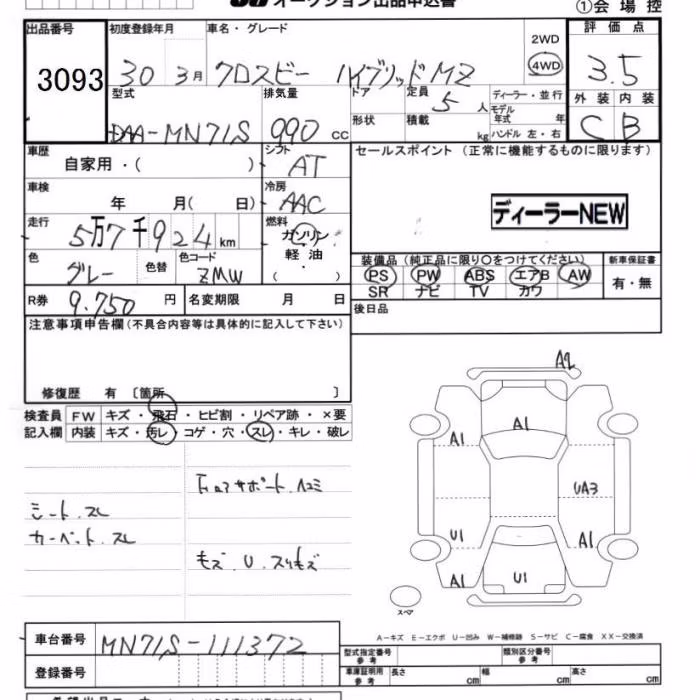 オークション出品申込書
①会場控
出品番号 初度登録年月 車名・グレード 評価点
3093 30 3月 クロスビー ハイブリッドMZ 2WD 4WD 3.5
型式 排気量 ドア 定員 5人 ディーラー・並行 外装 内装
DAA-MN71S 990 cc 形状 積載 kg モデル年式 年 ハンドル 左・右 C B
車歴 シフト セールスポイント (正常に機能するものに限ります)
自家用・( ) AT
車検 冷房
年 月( 日) AAC
ディーラーNEW
走行 燃料
5万7千924km ガソリン
軽油
( ・ )
色 色替 色コード 装備品 (純正品に限り○をつけてください) 新車保証書
グレー ZMW PS PW ABS エアB AW 有・無
SR ナビ TV カワ
R券 9.750 円 名変期限 月 日 後日品
注意事項申告欄(不具合内容等は具体的に記入して下さい)
修復歴 有 〔箇所 〕
検査員 FW キズ・飛石・ヒビ割・リペア跡・×要
記入欄 内装 キズ・汚レ・コゲ・穴・スレ・キレ・破レ
サポート.ヘコミ
シート.スレ
カーペット.スレ
キズ.U.スリキズ
A2
A1 A1
UA3
U1 A1
A1 U1
スペア
A-キズ E-エクボ U-凹み W-補修跡 S-サビ C-腐食 XX-交換済
車台番号 MN71S-111372
登録番号
型式指定番号 参考 類別区分番号 参考
車庫証明用 参考 長さ cm 幅 cm 高さ cm